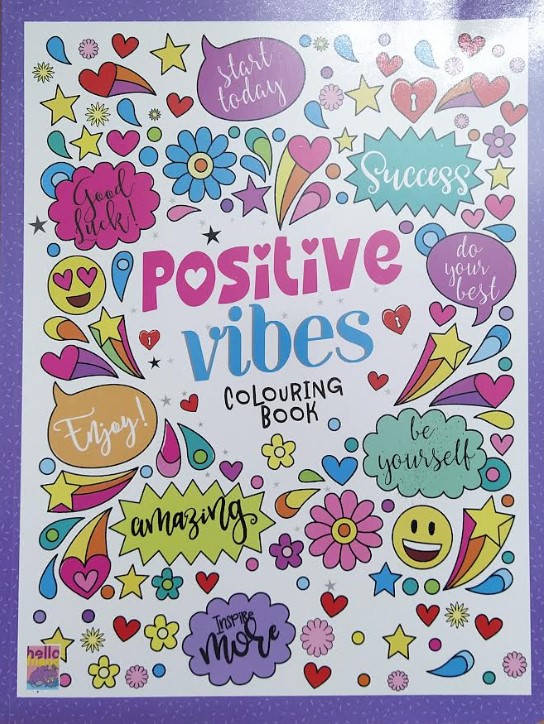 start
today
Good
Luck!
Success
positive
vibes
COLOURING
BOOK
do
your
best
Enjoy!
be
yourself
amazing
Inspire
more
hello